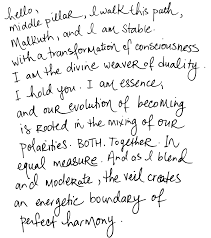 hello,
middle pillar, I walk this path,
Malkuth, and I am stable.
with a transformation of consciousness
I am the divine weaver of duality.
I hold you. I am essence,
and our evolution of becoming
is rooted in the mixing of our
polarities. BOTH. Together. In
equal measure. And as I blend
and moderate, the veil creates
an energetic boundary of
perfect harmony.